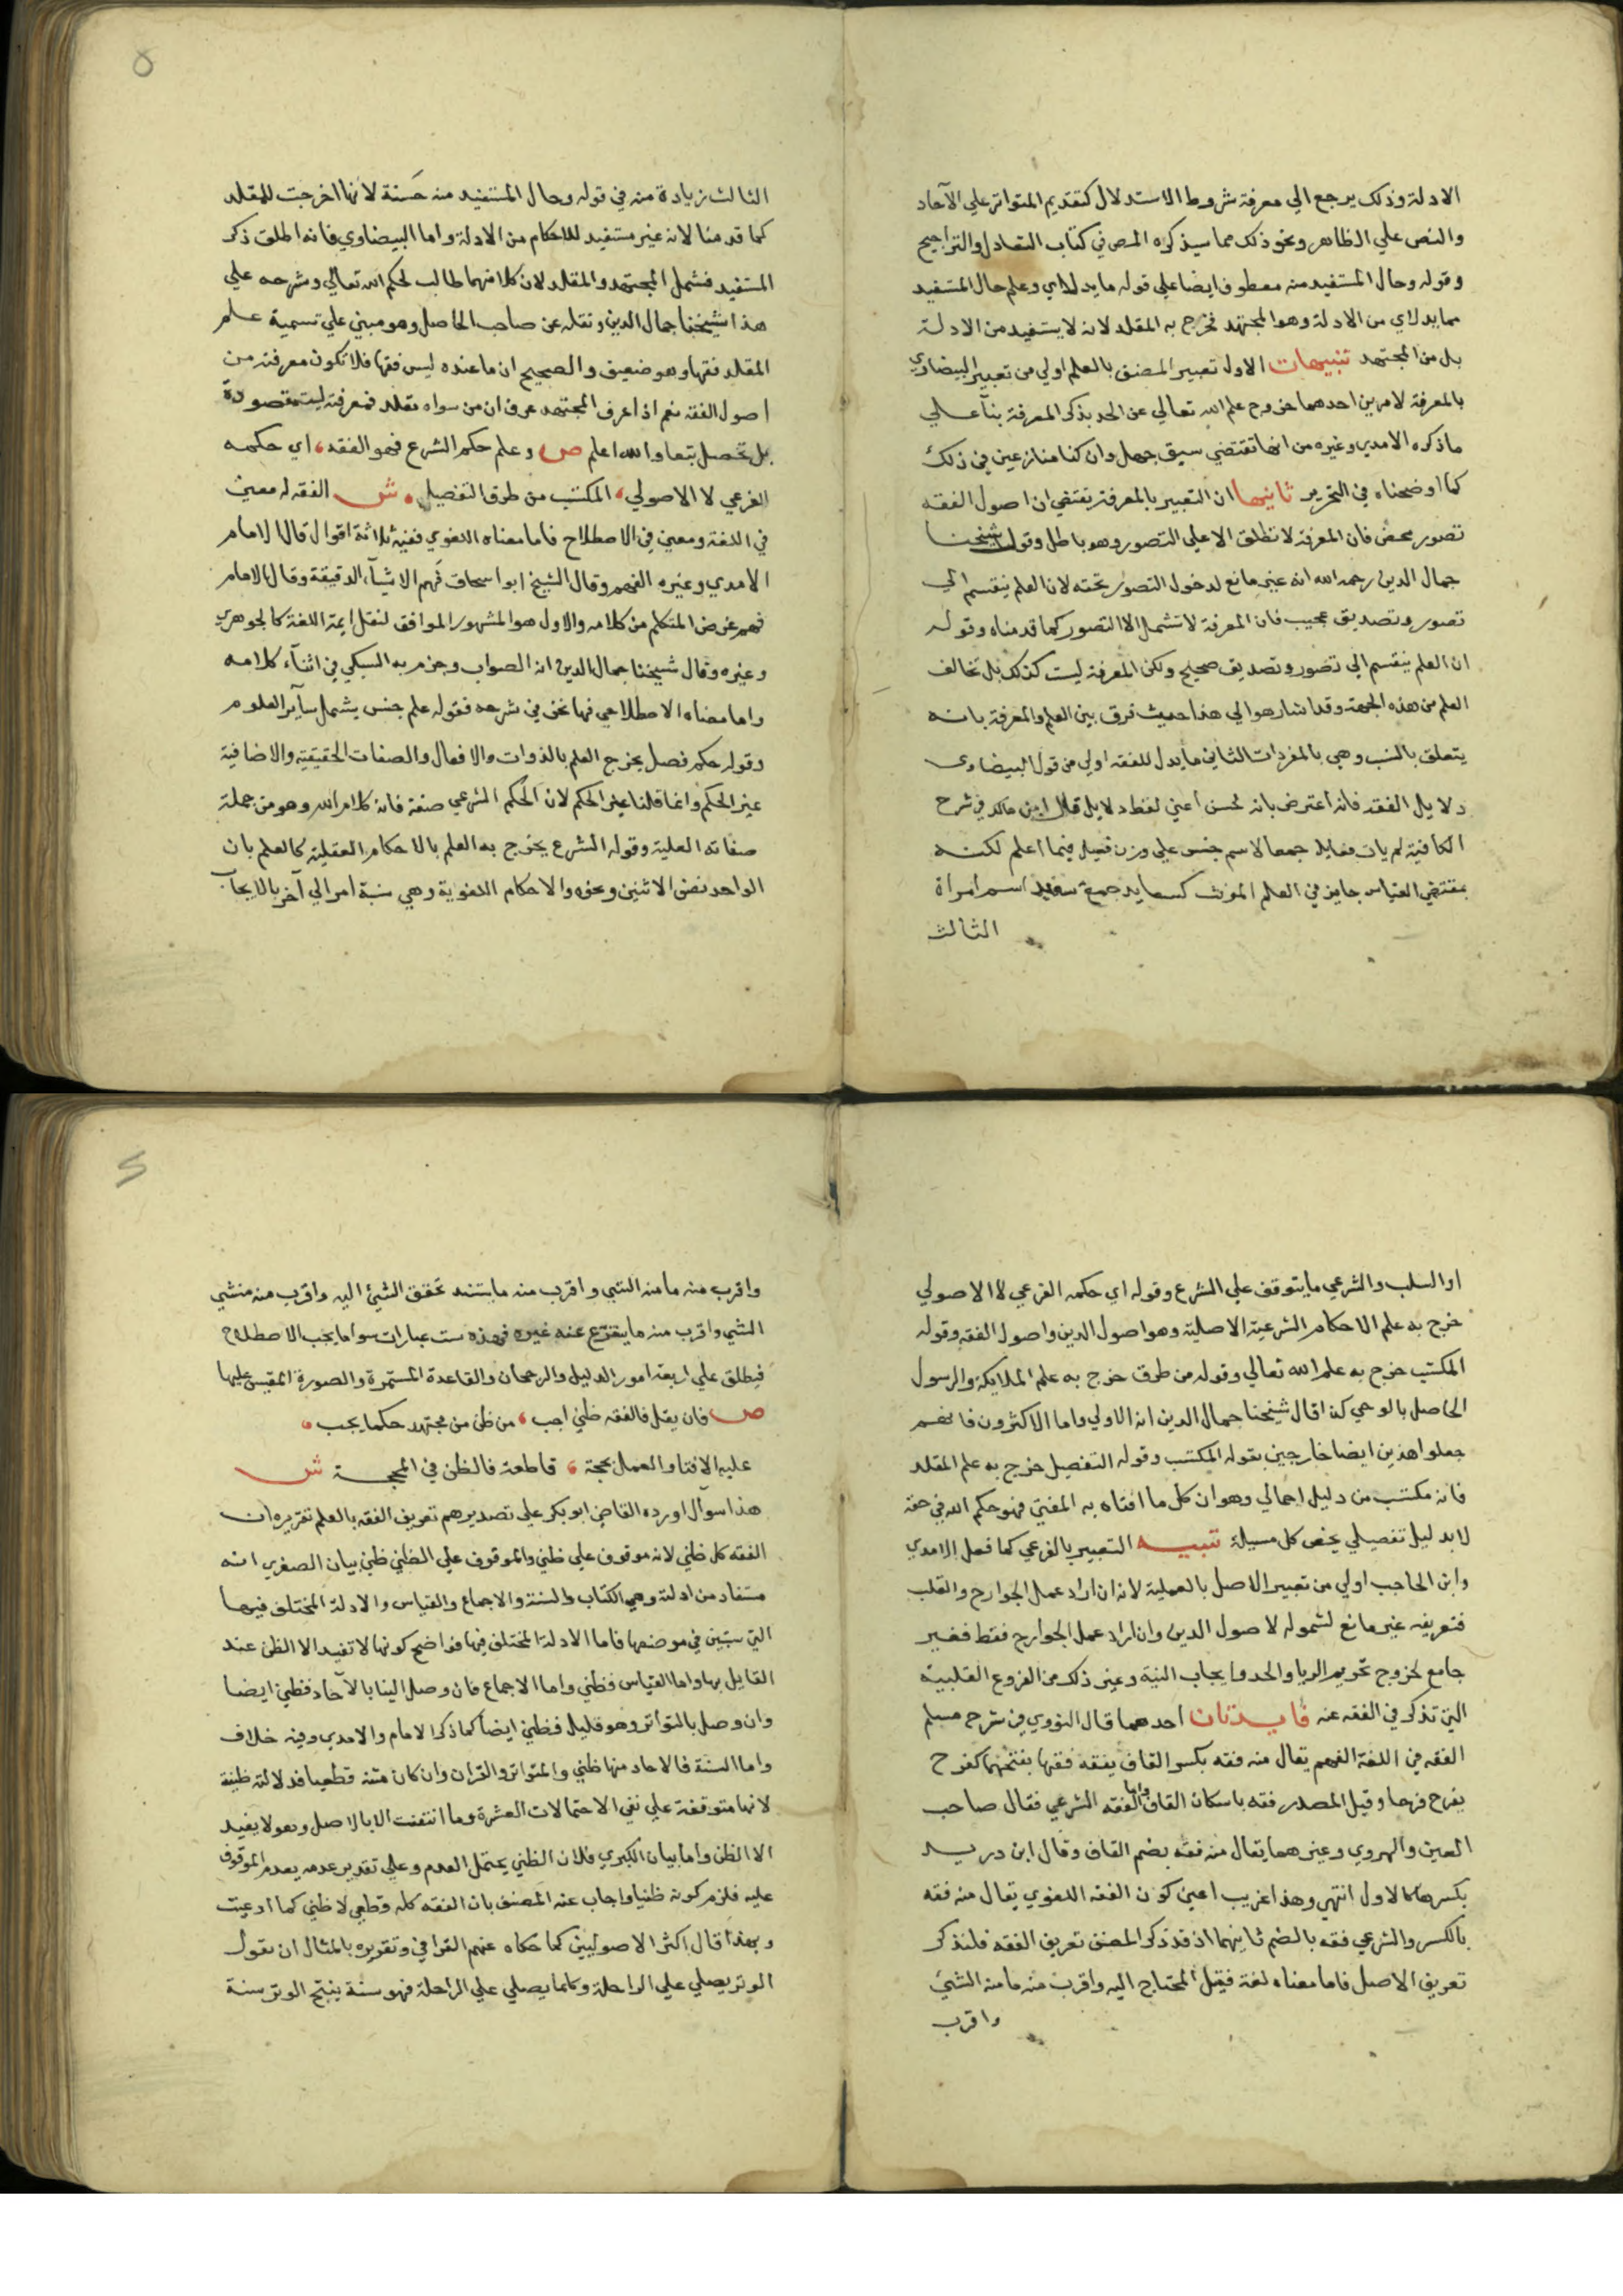 الادلة وذلك يرجع الي معرفة شروط الاستدلال كتقديم المتواتر علي الآحاد
والنص علي الظاهر ونحو ذلك مما سيذكره المص في كتاب التعادل والتراجيح
وقوله وحال المستفيد منه معطوف ايضا علي قوله مايدل اي وعلم حال المستفيد
ممايدل اي من الادلة وهو المجتهد فخرج به المقلد لانه لا يستفيد من الادلة
بل من المجتهد تنبيهات الاول تعبير المصنف بالعلم اولي من تعبير البيضاوي
بالمعرفة لامرين احدهما خروج علم الله تعالي عن الحد بذكر المعرفة بنآ علي
ماذكره الامدي وغيره من انها تقتضي سبق جهل وان كنا منازعين في ذلك
كما اوضحناه في التحرير ثانيها ان التعبير بالمعرفة يقتضي ان اصول الفقه
تصور محض فان المعرفة لا تطلق الا علي التصور وهو باطل وقول شيخنا
جمال الدين رحمه الله انه غير مانع لدخول التصور تحته لان العلم ينقسم الي
تصور وتصديق عجيب فان المعرفة لا تشمل الا التصور كما قدمناه وقوله
ان العلم ينقسم الي تصور وتصديق صحيح ولكن المعرفة ليست كذلك بل تخالف
العلم من هذه الجهة وقد اشار هو الي هذا حيث فرق بين العلم والمعرفة بانه
يتعلق بالنسب وهي بالمفردات الثاني مايدل للفقه اولي من قول البيضاوي
دلايل الفقه فانه اعترض بانه لحن اعني لفظ دلايل قال ابن مالك في شرح
الكافية لم يات فعايل جمعا لاسم جنس علي وزن فعيل فيما اعلم لكنه
بمقتضي القياس جايز في العلم المونث كسعايد جمع سعيد اسم امراة
الثالث
الثالث زيادة منه في قوله وحال المستفيد منه حَسَنة لانها اخرجت المقلد
كما قدمنا لانه غير مستفيد للاحكام من الادلة واما البيضاوي فانه اطلق ذكر
المستفيد فشمل المجتهد والمقلد لان كلا منهما طالب لحكم الله تعالي وشرحه علي
هذا شيخنا جمال الدين ونقله عن صاحب الحاصل وهو مبني علي تسمية علم
المقلد فقها وهو ضعيف والصحيح ان ما عنده ليس فقها فلا تكون معرفته من
اصول الفقه نعم اذا عرف المجتهد عرف ان من سواه مقلد فمعرفته ليست مقصودة
بل تحصل تبعا والله اعلم ص وعلم حكم الشرع فهو الفقه، اي حكمه
الفرعي لا الاصولي، المكتسب من طرق التفصيل. ش الفقه له معني
في اللغة ومعني في الاصطلاح فاما معناه اللغوي ففيه ثلاثة اقوال قال الامام
الامدي وغيره الفهم وقال الشيخ ابو اسحاق فَهم الاشيآء الدقيقة وقال الامام
فهم غرض المتكلم من كلامه والاول هو المشهور الموافق لنقل ايمة اللغة كالجوهري
وغيره وقال شيخنا جمال الدين انه الصواب وجزم به السبكي في اثنآء كلامه
واما معناه الاصطلاحي فها نحن في شرحه فقوله علم جنس يشمل ساير العلوم
وقوله حكم فصل يخرج العلم بالذوات والافعال والصفات الحقيقية والاضافية
غير الحكم وانما قلنا غير الحكم لان الحكم الشرعي صفة فانه كلام الله وهو من جملة
صفاته العلية وقوله الشرع يخرج به العلم بالاحكام العقلية كالعلم بان
الواحد نصف الاثنين ونحوه والاحكام اللغوية وهي نسبة امر الي آخر بالايجاب
او السلب والشرعي مايتوقف علي الشرع وقوله اي حكمه الفرعي لا الاصولي
خرج به علم الاحكام الشرعية الاصلية وهو اصول الدين واصول الفقه وقوله
المكتسب خرج به علم الله تعالي وقوله من طرق خرج به علم الملايكة والرسول
الحاصل بالوحي كذا قال شيخنا جمال الدين انه الاولي واما الاكثرون فانهم
جعلوا هذين ايضا خارجين بقوله المكتسب وقوله التفصيل خرج به علم المقلد
فانه مكتسب من دليل اجمالي وهو ان كل ما افتاه به المفتي فهو حكم الله في حقه
لا بدليل تفصيلي يخص كل مسيلة تنبيه التعبير بالفرعي كما فعل الامدي
وابن الحاجب اولي من تعبير الاصل بالعملية لانه ان اراد عمل الجوارح والقلب
فتعريفه غير مانع لشموله لاصول الدين وان اراد عمل الجوارح فقط فغير
جامع لخروج تحريم الريا والحد وايجاب النية وغير ذلك من الفروع القلبية
التي تذكر في الفقه عنه فايدتان احدهما قال النووي في شرح مسلم
الفقه في اللغة الفهم يقال منه فقه بكسر القاف يفقه فقها بفتحهما كفرح
يفرح فرحا وقيل المصدر فقه باسكان القاف واما الفقه الشرعي فقال صاحب
العين والهروي وغيرهما يقال منه فقه بضم القاف وقال ابن دريد
بكسرها كالاول انتهي وهذا غريب اعني كون الفقه اللغوي يقال منه فقه
بالكسر والشرعي فقه بالضم ثانيهما اذ قد ذكر المصنف تعريف الفقه فلنذكر
تعريف الاصل فاما معناه لغة فقيل المحتاج اليه واقرب منه ما منه الشيء
واقرب
واقرب منه ما منه الشي واقرب منه مايستند تحقق الشيء اليه واقرب منه منشي
الشي واقرب منه مايتفرع عنه غيره فهذه ست عبارات سوا مايجب الاصطلاح
فيطلق علي اربعة امور الدليل والرجحان والقاعدة المستمرة والصورة المقيس عليها
ص فان يقل فالفقه ظني اجب، من ظن من مجتهد حكما يجب،
عليه الافتا والعمل بحجة، قاطعة فالظن في المحجة ش
هذا سوآل اورده القاضي ابو بكر علي تصديرهم تعريف الفقه بالعلم تقريره ان
الفقه كل ظني لانه موقوف علي ظني والموقوف علي الظني ظني بيان الصغري انه
مستفاد من ادلته وهي الكتاب والسنة والاجماع والقياس والادلة المختلف فيها
التي ستبين في موضعها فاما الادلة المختلف فيها فواضح كونها لا تفيد الا الظن عند
القايل بها واما القياس فظني واما الاجماع فان وصل الينا بالآحاد فظني ايضا
وان وصل بالتواتر وهو قليل فظني ايضا كما ذكر الامام والامدي وفيه خلاف
واما السنة فالاحاد منها ظني والمتواتر والقران وان كان متنه قطعيا فدلالته ظنية
لانها متوقفة علي نفي الاحتمالات العشرة وما انتفت الا بالاصل وهو لا يفيد
الا الظن واما بيان الكبري فلان الظني يحتمل العدم وعلي تقدير عدمه يعدم الموقوف
عليه فلزم كونه ظنيا واجاب عنه المصنف بان الفقه كله قطعي لا ظني كما ادعيت
وبهذا قال اكثر الاصوليين كما حكاه عنهم القرافي وتقريره بالمثال ان يقول
الوتر يصلي علي الراحلة وكلما يصلي علي الراحلة فهو سنة ينتج الوتر سنة